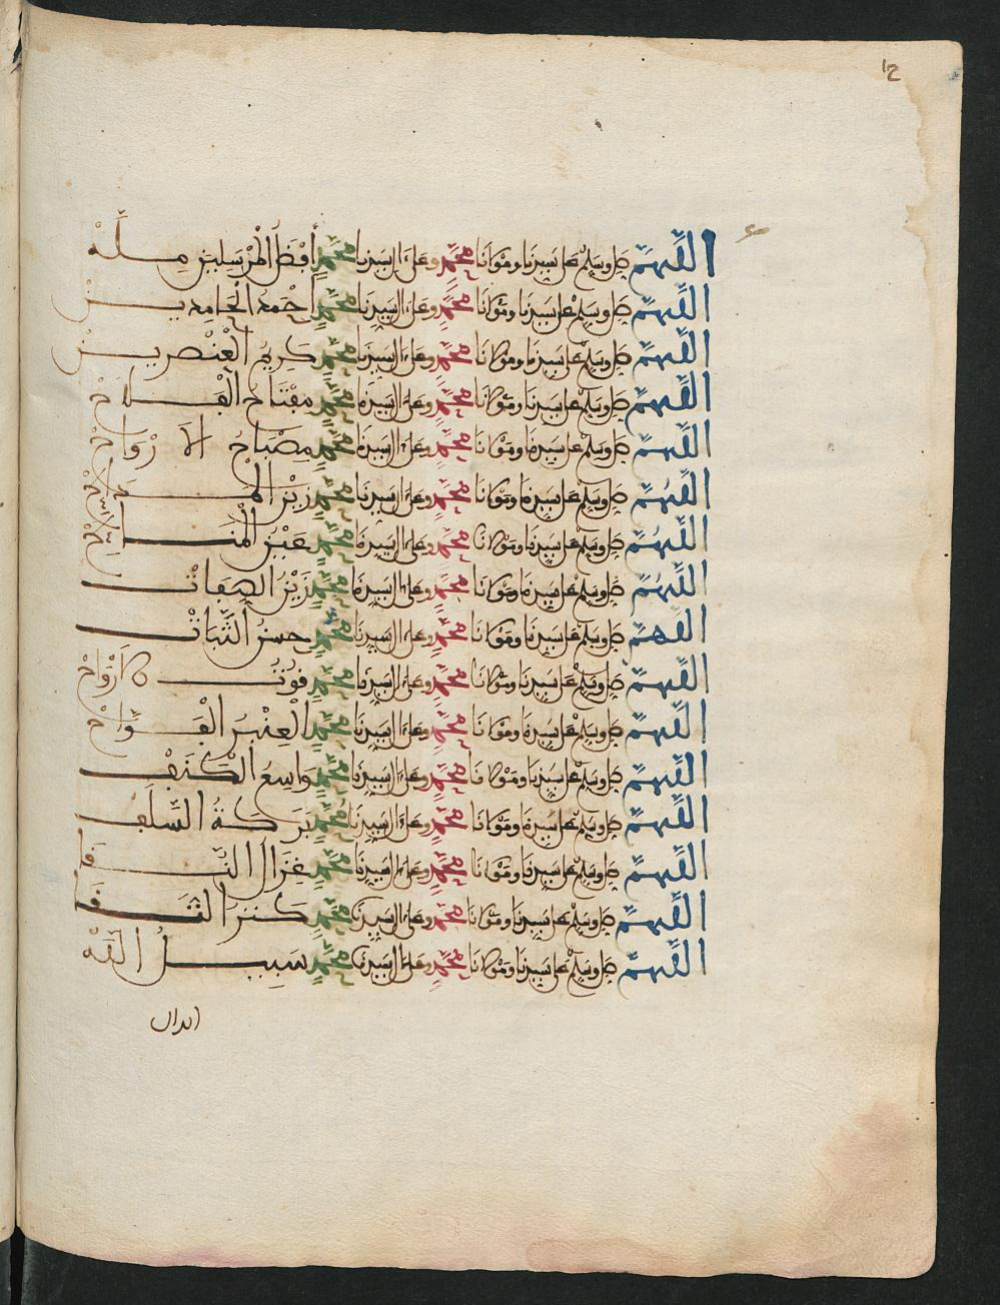 12
اللَّهُمَّ صَلِّ وَسَلِّمْ عَلَى سَيِّدِنَا وَمَوْلَانَا مُحَمَّدٍ وَعَلَى ءَالِ سَيِّدِنَا مُحَمَّدٍ أَفْضَلِ الْمُرْسَلِينَ مِلَّهْ
اللَّهُمَّ صَلِّ وَسَلِّمْ عَلَى سَيِّدِنَا وَمَوْلَانَا مُحَمَّدٍ وَعَلَى ءَالِ سَيِّدِنَا مُحَمَّدٍ أَحْمَدِ الْحَامِدِيـــنْ
اللَّهُمَّ صَلِّ وَسَلِّمْ عَلَى سَيِّدِنَا وَمَوْلَانَا مُحَمَّدٍ وَعَلَى ءَالِ سَيِّدِنَا مُحَمَّدٍ كَرِيمِ الْعُنْصُرِيـــنْ
اللَّهُمَّ صَلِّ وَسَلِّمْ عَلَى سَيِّدِنَا وَمَوْلَانَا مُحَمَّدٍ وَعَلَى ءَالِ سَيِّدِنَا مُحَمَّدٍ مِفْتَاحِ الْفَـــلَاحْ
اللَّهُمَّ صَلِّ وَسَلِّمْ عَلَى سَيِّدِنَا وَمَوْلَانَا مُحَمَّدٍ وَعَلَى ءَالِ سَيِّدِنَا مُحَمَّدٍ مِصْبَاحِ الْأَرْوَاحْ
اللَّهُمَّ صَلِّ وَسَلِّمْ عَلَى سَيِّدِنَا وَمَوْلَانَا مُحَمَّدٍ وَعَلَى ءَالِ سَيِّدِنَا مُحَمَّدٍ زَيْنِ
اللَّهُمَّ صَلِّ وَسَلِّمْ عَلَى سَيِّدِنَا وَمَوْلَانَا مُحَمَّدٍ وَعَلَى ءَالِ سَيِّدِنَا مُحَمَّدٍ
اللَّهُمَّ صَلِّ وَسَلِّمْ عَلَى سَيِّدِنَا وَمَوْلَانَا مُحَمَّدٍ وَعَلَى ءَالِ سَيِّدِنَا مُحَمَّدٍ زَيْنِ الصِّفَاتْ
اللَّهُمَّ صَلِّ وَسَلِّمْ عَلَى سَيِّدِنَا وَمَوْلَانَا مُحَمَّدٍ وَعَلَى ءَالِ سَيِّدِنَا مُحَمَّدٍ حِسْنِ الثَّبَاتْ
اللَّهُمَّ صَلِّ وَسَلِّمْ عَلَى سَيِّدِنَا وَمَوْلَانَا مُحَمَّدٍ وَعَلَى ءَالِ سَيِّدِنَا مُحَمَّدٍ قُوتِ الْأَرْوَاحْ
اللَّهُمَّ صَلِّ وَسَلِّمْ عَلَى سَيِّدِنَا وَمَوْلَانَا مُحَمَّدٍ وَعَلَى ءَالِ سَيِّدِنَا مُحَمَّدٍ الْعَنْبَرِ الْفَـــوَّاحْ
اللَّهُمَّ صَلِّ وَسَلِّمْ عَلَى سَيِّدِنَا وَمَوْلَانَا مُحَمَّدٍ وَعَلَى ءَالِ سَيِّدِنَا مُحَمَّدٍ وَاسِعِ الْكَنَفْ
اللَّهُمَّ صَلِّ وَسَلِّمْ عَلَى سَيِّدِنَا وَمَوْلَانَا مُحَمَّدٍ وَعَلَى ءَالِ سَيِّدِنَا مُحَمَّدٍ بَرَكَةِ السَّلَفْ
اللَّهُمَّ صَلِّ وَسَلِّمْ عَلَى سَيِّدِنَا وَمَوْلَانَا مُحَمَّدٍ وَعَلَى ءَالِ سَيِّدِنَا مُحَمَّدٍ غَزَالِ النَّـــقَا
اللَّهُمَّ صَلِّ وَسَلِّمْ عَلَى سَيِّدِنَا وَمَوْلَانَا مُحَمَّدٍ وَعَلَى ءَالِ سَيِّدِنَا مُحَمَّدٍ كَنْزِ التُّـــقَا
اللَّهُمَّ صَلِّ وَسَلِّمْ عَلَى سَيِّدِنَا وَمَوْلَانَا مُحَمَّدٍ وَعَلَى ءَالِ سَيِّدِنَا مُحَمَّدٍ سَبِيـــلِ اللَّهْ